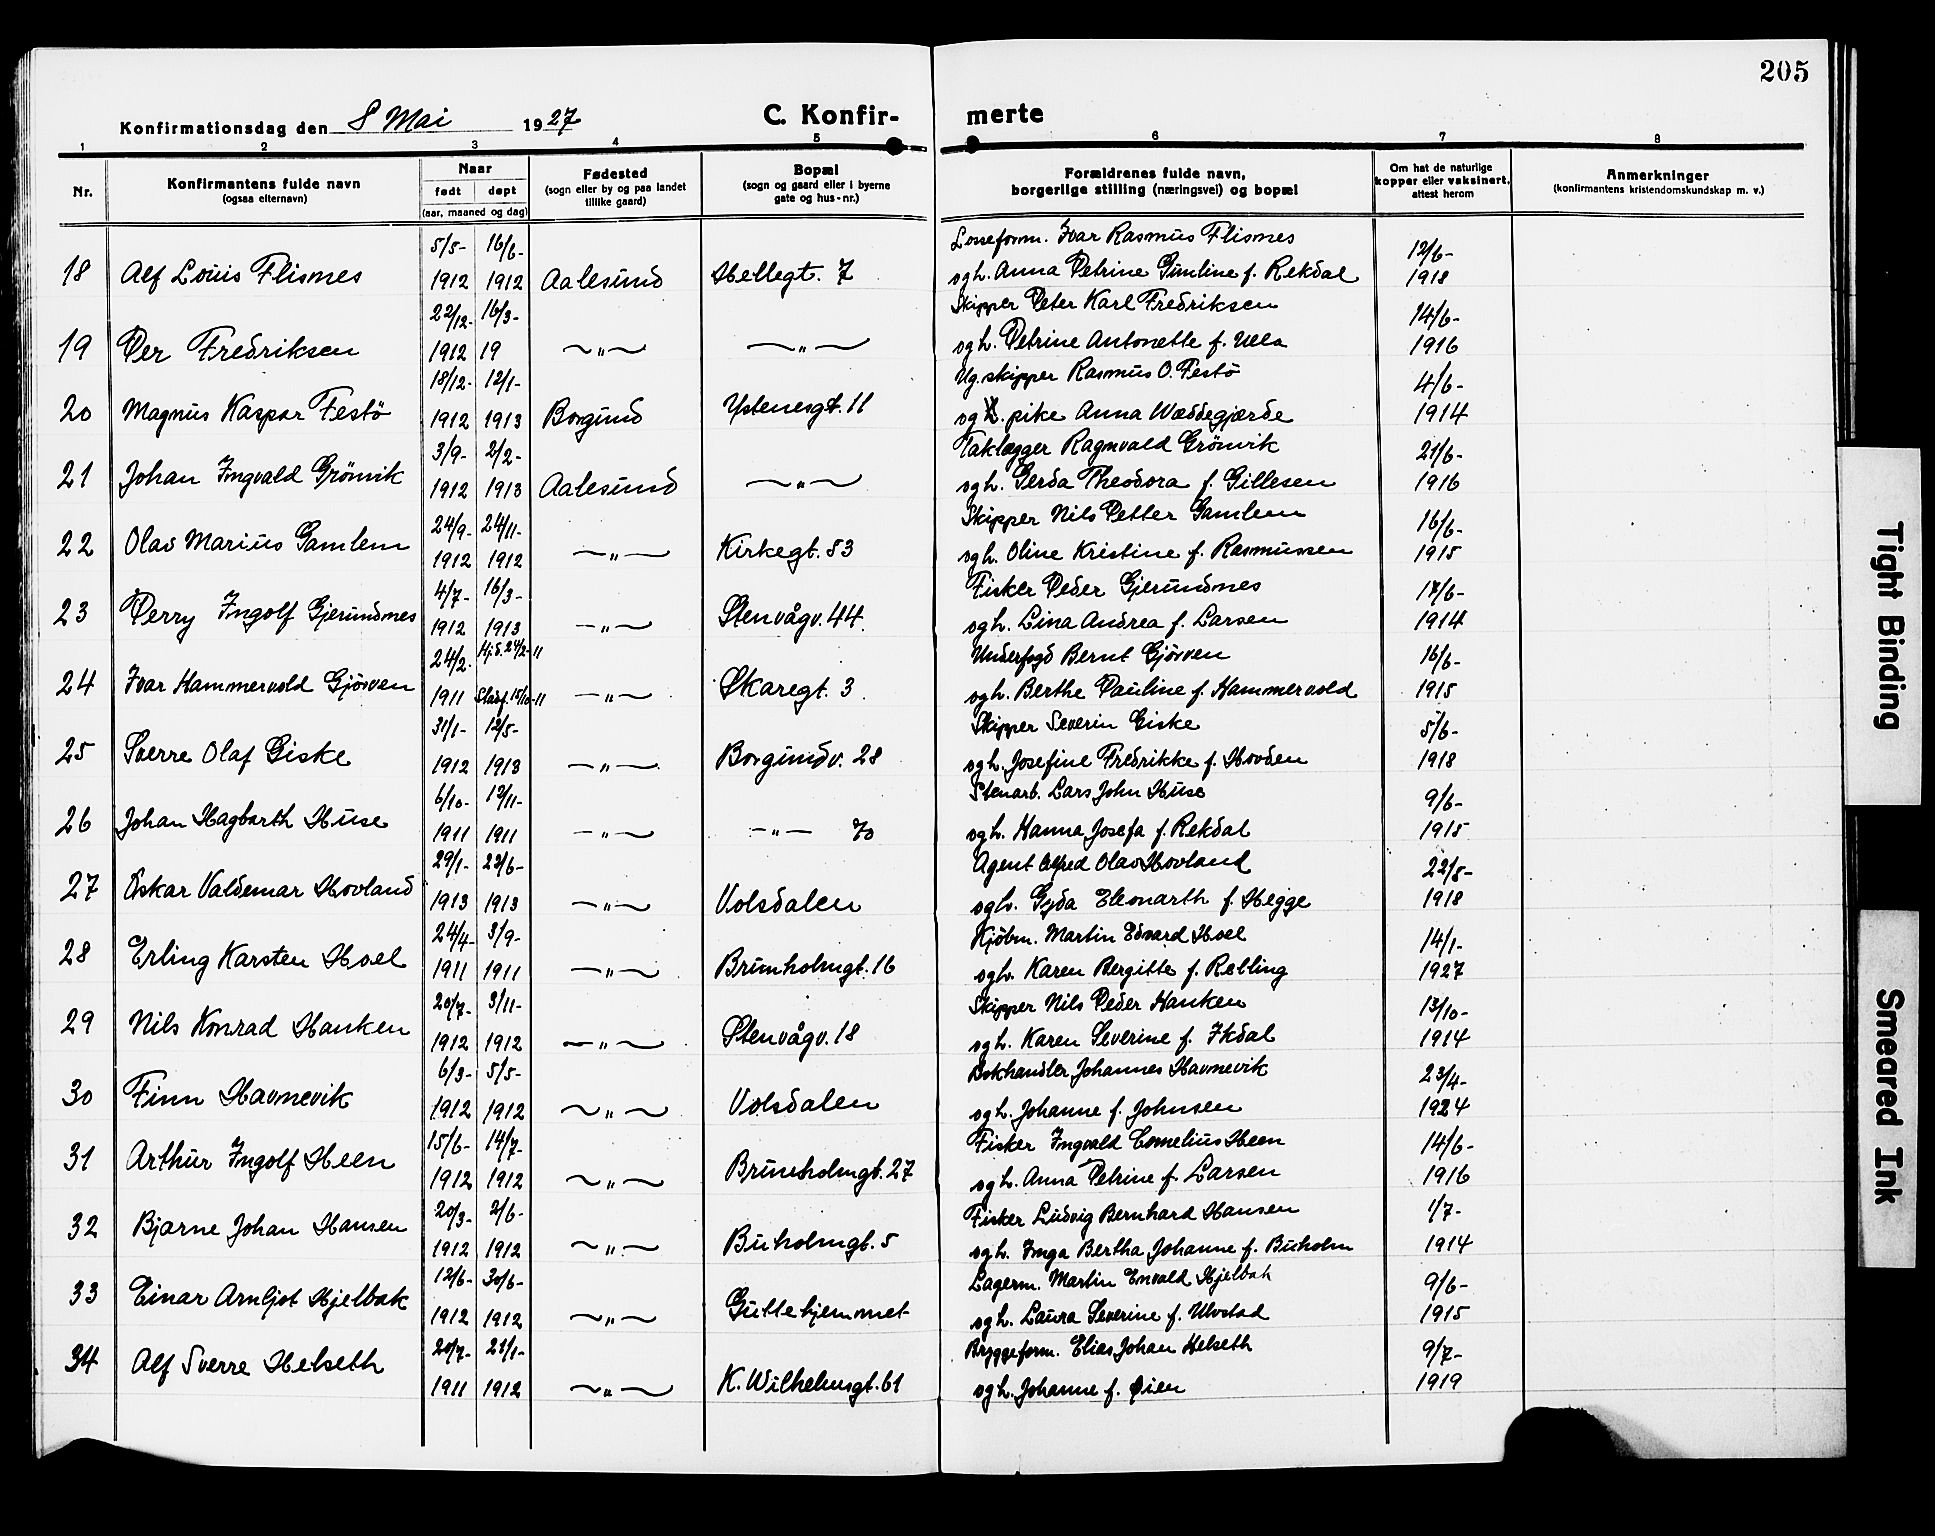 205
Konfirmationsdag den 8 Mai 1927
C. Konfir- merte
1 2 3 4 5 6 7 8
Nr.
Konfirmantens fulde navn
(ogsaa efternavn)
Naar
født døpt
(aar, maaned og dag)
Fødested
(sogn eller by og paa landet
tillike gaard)
Bopæl
(sogn og gaard eller i byerne
gate og hus-nr.)
Forældrenes fulde navn,
borgerlige stilling (næringsvei) og bopæl
Om hat de naturlige
kopper eller vaksinert,
attest herom
Anmerkninger
(konfirmantens kristendomskundskap m. v.)
5/5- 16/6- Losseform. Ivar Rasmus Flisnes 12/6-
18 Alf Louis Flisnes 1912 1912 Aalesund Hellegt. 7 og h. Anna Petrine Gunline f. Rekdal 1918
22/12- 16/3- Skipper Peter Karl Fredriksen 14/6-
19 Per Fredriksen 1912 19 — „ — — „ — og h. Petrine Antonette f. 1916
18/12- 12/1- Ug. skipper Rasmus O. Festö 4/6-
20 Magnus Kaspar Festö 1912 1913 Borgund Ystenesgt. 11 og pike Anna Wæddegjærde 1914
3/9- 2/2- Taklægger Ragnvald Grönvik 21/6-
21 Johan Ingvald Grönvik 1912 1913 Aalesund — „ — og h. Gerda Theodora f. Gillesen 1916
24/9- 24/11- Skipper Nils Petter Gamlem 16/6-
22 Olav Marius Gamlem 1912 1912 — „ — Kirkegt. 53 og h. Oline Kristine f. Rasmussen 1915
4/7- 16/3- Fisker Peder Gjerundnes 17/6-
23 Perry Ingolf Gjerundnes 1912 1913 — „ — Stenvågv. 44. og h. Lina Andrea f. Larsen 1914
24/2- Hj.d. 24/2-11 Underfogd Bernt Gjörven 16/6-
24 Ivar Hammervold Gjörven 1911 Stadf. 15/10-11 — „ — Skaregt. 3. og h. Berthe Pauline f. Hammervold 1915
31/1- 12/5- Skipper Severin Giske 5/6-
25 Sverre Olaf Giske 1912 1913 — „ — Borgundv. 28 og h. Josefine Fredrikke f. Hovden 1918
6/10- 12/11- Stenarb. Lars John Huse 9/6-
26 Johan Hagbarth Huse 1911 1911 — „ — — „ — 70 og h. Hanna Josefa f. Rekdal 1915
29/1- 22/6- Agent Alfred Olav Hovland 22/5-
27 Oskar Valdemar Hovland 1913 1913 — „ — Volsdalen og h. Gyda Eleonarth f. Hegge 1918
24/4- 3/9- Kjöbm. Martin Edvard Hoel 14/1-
28 Erling Karsten Hoel 1911 1911 — „ — Brunholmgt. 16 og h. Karen Bergitte f. Relling 1927
20/7- 3/11- Skipper Nils Peder Hanken 13/10-
29 Nils Konrad Hanken 1912 1912 — „ — Stenvågv. 18 og h. Karen Severine f. Ikdal 1914
6/3- 5/5- Bokhandler Johannes Havnevik 23/4-
30 Finn Havnevik 1912 1912 — „ — Volsdalen og h. Johanne f. Johnsen 1924
15/6- 14/7- Fisker Ingvald Cornelius Heen 14/6-
31 Arthur Ingolf Heen 1912 1912 — „ — Brunholmgt. 27 og h. Anna Petrine f. Larsen 1916
20/3- 2/6- Fisker Ludvig Bernhard Hansen 1/7-
32 Bjarne Johan Hansen 1912 1912 — „ — Buholmgt. 5 og h. Inga Bertha Johanne f. Buholm 1914
12/6- 30/6- Lagerm. Martin Envald Hjelbak 9/6-
33 Einar Arnljot Hjelbak 1912 1912 — „ — Guttehjemmet og h. Laura Severine f. Ulvstad 1915
20/7- 21/1- Bryggeform. Elias Johan Helseth 9/7-
34 Alf Sverre Helseth 1911 1912 — „ — K. Wilhelmsgt. 61 og h. Johanne f. Øien 1919
Tight Binding
Smeared Ink